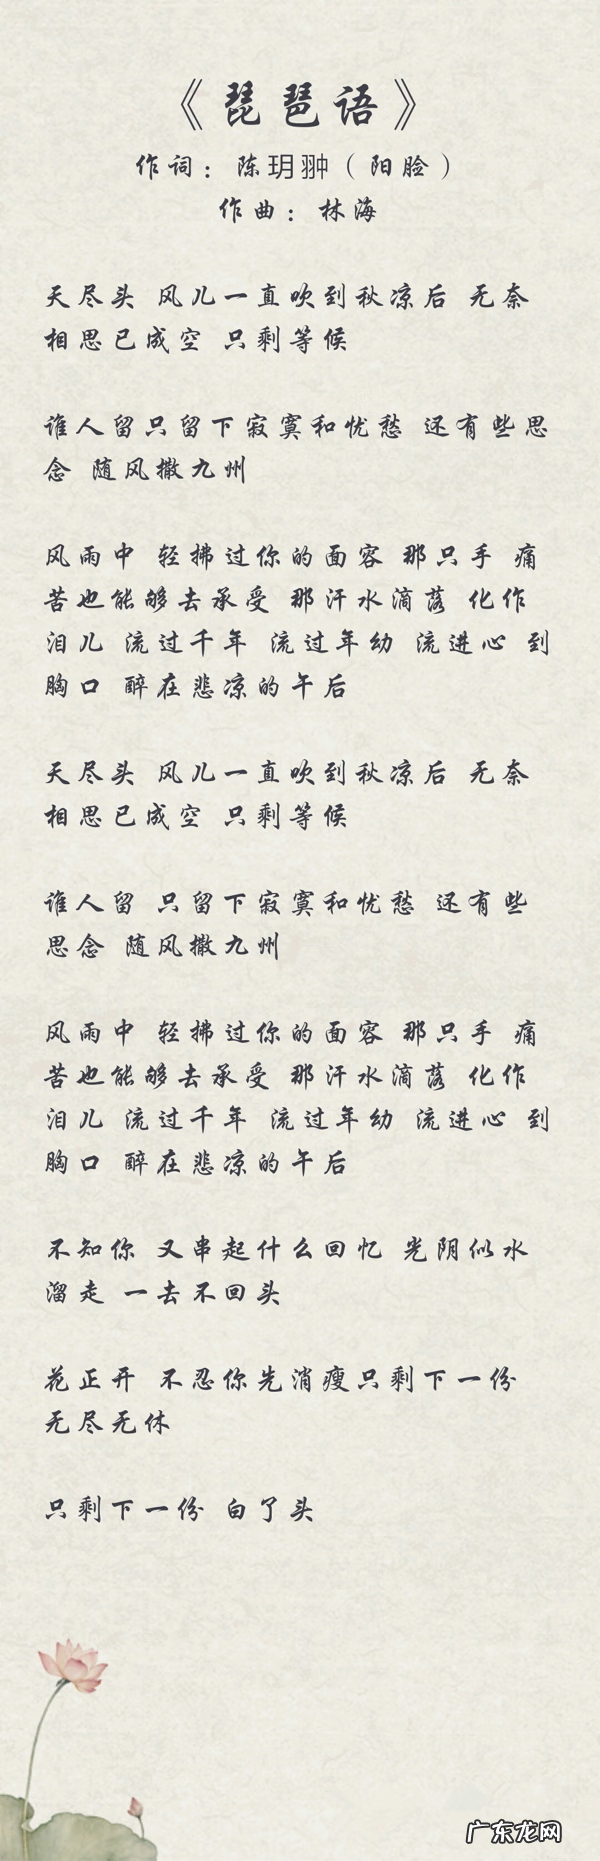 《琵琶语》
作词：陈玥翀（阳脸）
作曲：林海
天尽头 风儿一直吹到秋凉后 无奈
相思已成空 只剩等候
谁人留只留下寂寞和忧愁 还有些思
念 随风撒九州
风雨中 轻拂过你的面容 那只手 痛
苦也能够去承受 那汗水滴落 化作
泪儿 流过千年 流过年幼 流进心 到
胸口 醉在悲凉的午后
天尽头 风儿一直吹到秋凉后 无奈
相思已成空 只剩等候
谁人留 只留下寂寞和忧愁 还有些
思念 随风撒九州
风雨中 轻拂过你的面容 那只手 痛
苦也能够去承受 那汗水滴落 化作
泪儿 流过千年 流过年幼 流进心 到
胸口 醉在悲凉的午后
不知你 又串起什么回忆 光阴似水
溜走 一去不回头
花正开 不忍你先消瘦只剩下一份
无尽无休
只剩下一份 白了头
广东龙网